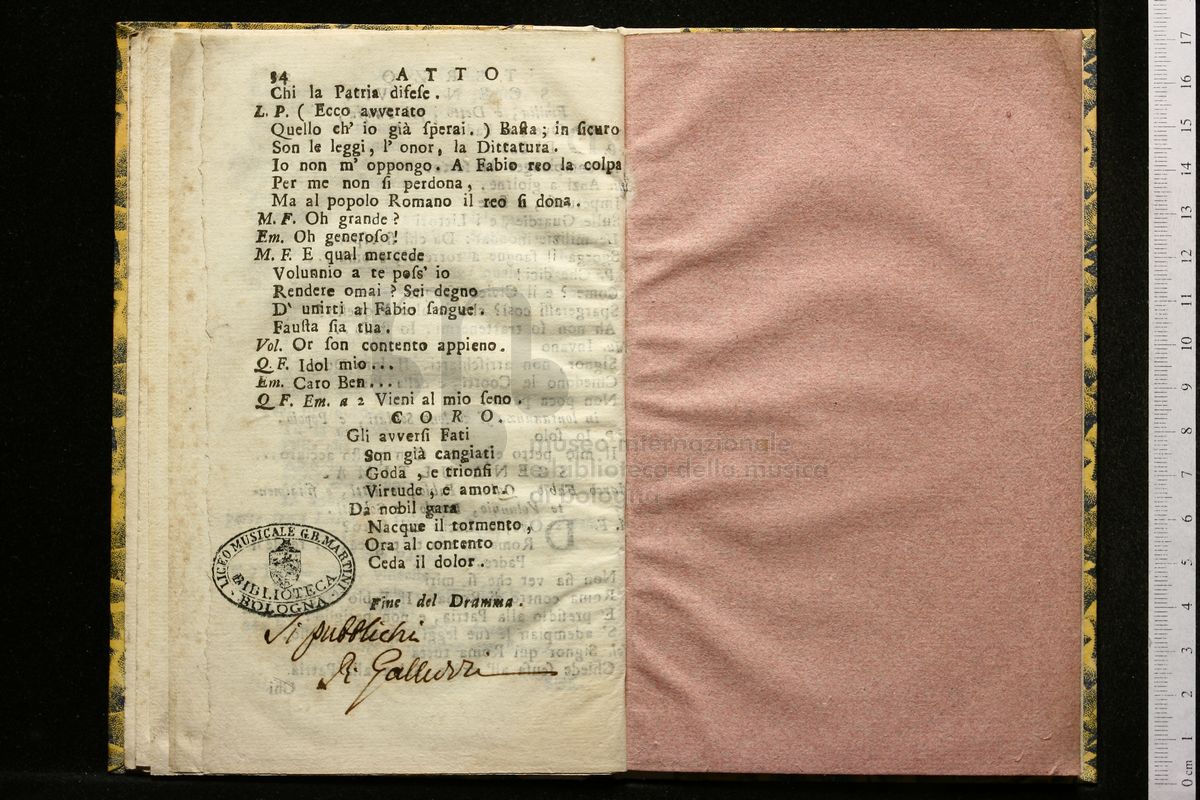 54 ATTO
Chi la Patria difese.
L. P. ( Ecco avverato
Quello ch' io già sperai. ) Basta; in sicuro
Son le leggi, l' onor, la Dittatura.
Io non m' oppongo. A Fabio reo la colpa
Per me non si perdona,
Ma al popolo Romano il reo si dona.
M. F. Oh grande?
Em. Oh generoso!
M. F. E qual mercede
Volunnio a te poss' io
Rendere omai? Sei degno
D' unirti al Fabio sangue.
Fausta sia tua.
Vol. Or son contento appieno.
Q. F. Idol mio...
Em. Caro Ben...
Q F. Em. a 2 Vieni al mio seno.
CORO.
Gli avversi Fati
Son già cangiati
Goda, e trionfi
Virtude, e amor.
Da nobil gara
Nacque il tormento,
Ora al contento
Ceda il dolor.
Fine del Dramma.
LICEO MUSICALE G.B. MARTINI
BIBLIOTECA
BOLOGNA
Si pubblichi
museo internazionale
e biblioteca della musica
di bologna
0 cm 1 2 3 4 5 6 7 8 9 10 11 12 13 14 15 16 17